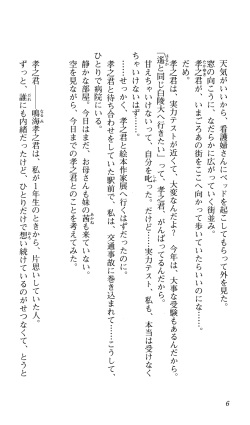 天気がいいから、看護婦さんにベッドを起こしてもらって外を見た。
窓の向こうに、なだらかに広がっていく街並み。
孝之君が、いまごろあの街をここへ向かって歩いていたらいいのにな……。
だめ。
孝之君は、実力テストが近くて、大変なんだよ！　今年は、大事な受験もあるんだから。
「遙と同じ白陵大へ行きたい」って、孝之君、がんばってるんだから。
甘えちゃいけないって、自分を叱った。だけど……実力テスト、私も、本当は受けなく
ちゃいけないはず……。
……せっかく、孝之君と絵本作家展へ行くはずだったのに。
孝之君と待ち合わせをしていた駅前で、私は、交通事故に巻き込まれて……こうして、
ひとりで病院にいる。
静かな部屋。今日はまだ、お母さんも妹の茜も来ていない。
空を見ながら、今日までの孝之君とのことを考えてみた。
孝之君――鳴海孝之君は、私が１年生のときから、片思いしていた人。
ずっと、誰にも内緒だったけど、ひとりだけで想い続けているのがせつなくて、とうと
6